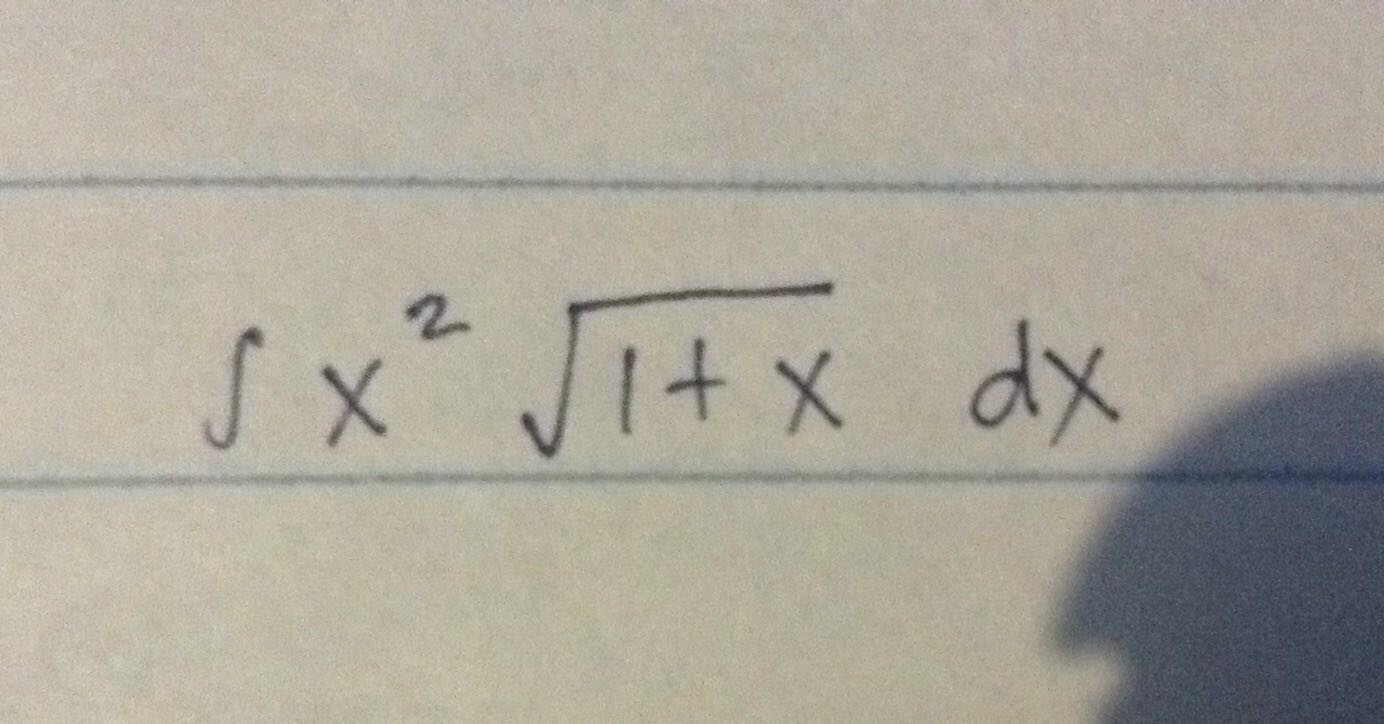 ∫ x² √(1 + x) dx